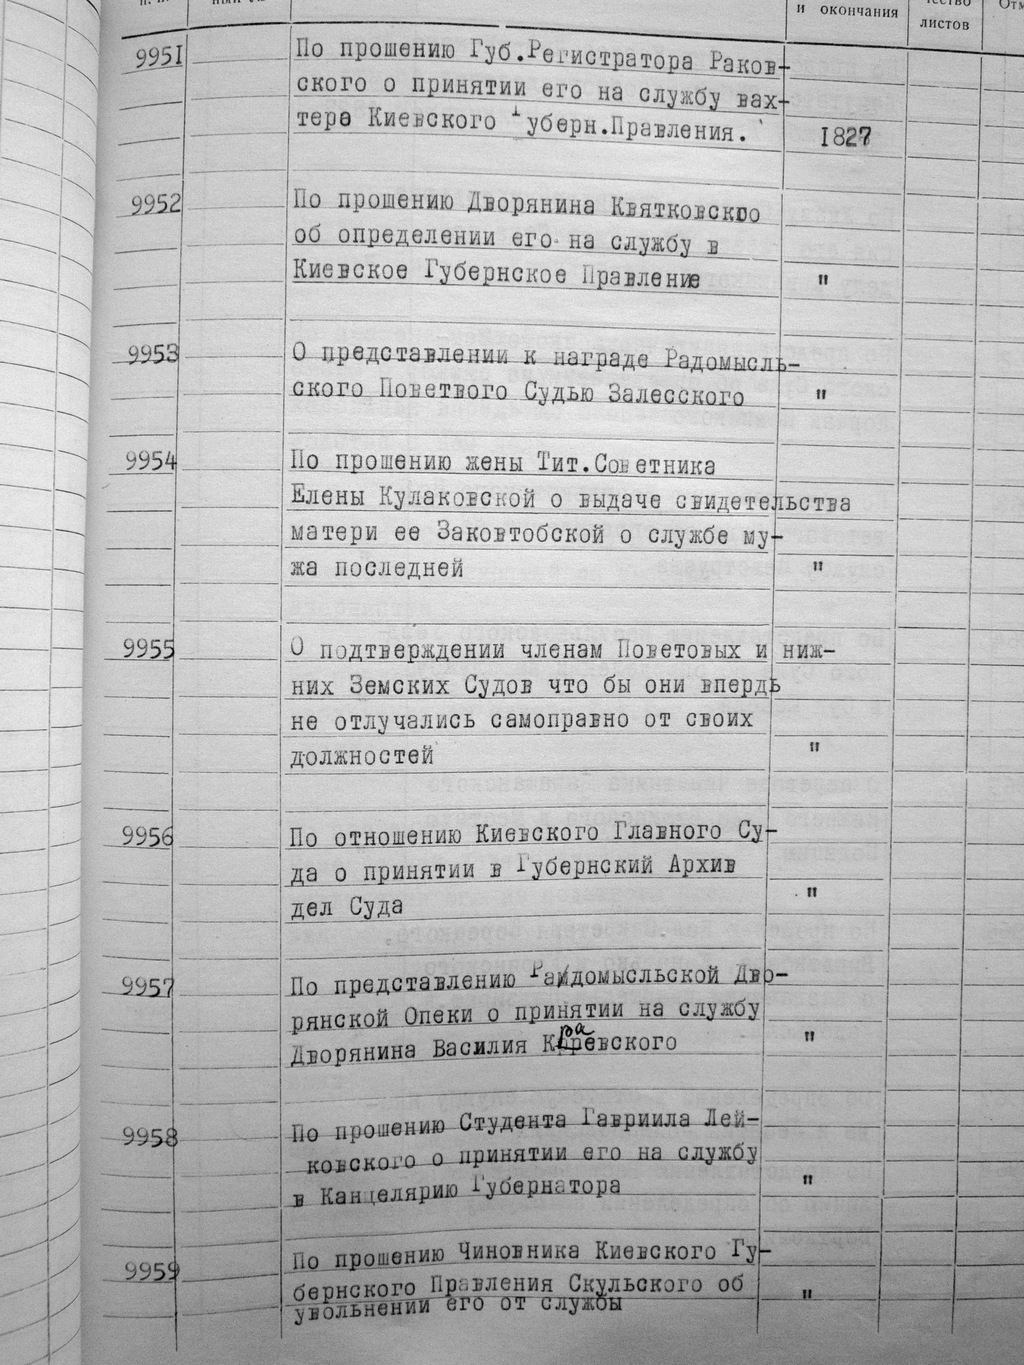 и окончания
листов
9951 По прошению Губ.Регистратора Раков-
ского о принятии его на службу вах-
тера Киевского Губерн.Правления. 1827
9952 По прошению Дворянина Квятковского
об определении его на службу в
Киевское Губернское Правление "
9953 О представлении к награде Радомысль-
ского Поветвого Судью Залесского "
9954 По прошению жены Тит.Советника
Елены Кулаковской о выдаче свидетельства
матери ее Заковтобской о службе му-
жа последней "
9955 О подтверждении членам Поветовых и ниж-
них Земских Судов что бы они впердь
не отлучались самоправно от своих
должностей "
9956 По отношению Киевского Главного Су-
да о принятии в Губернский Архив
дел Суда "
9957 По представлению Радомысльской Дво-
рянской Опеки о принятии на службу
Дворянина Василия Кραевского "
9958 По прошению Студента Гавриила Лей-
ковского о принятии его на службу
в Канцелярию Губернатора "
9959 По прошению Чиновника Киевского Гу-
бернского Правления Скульского об
увольнении его от службы "